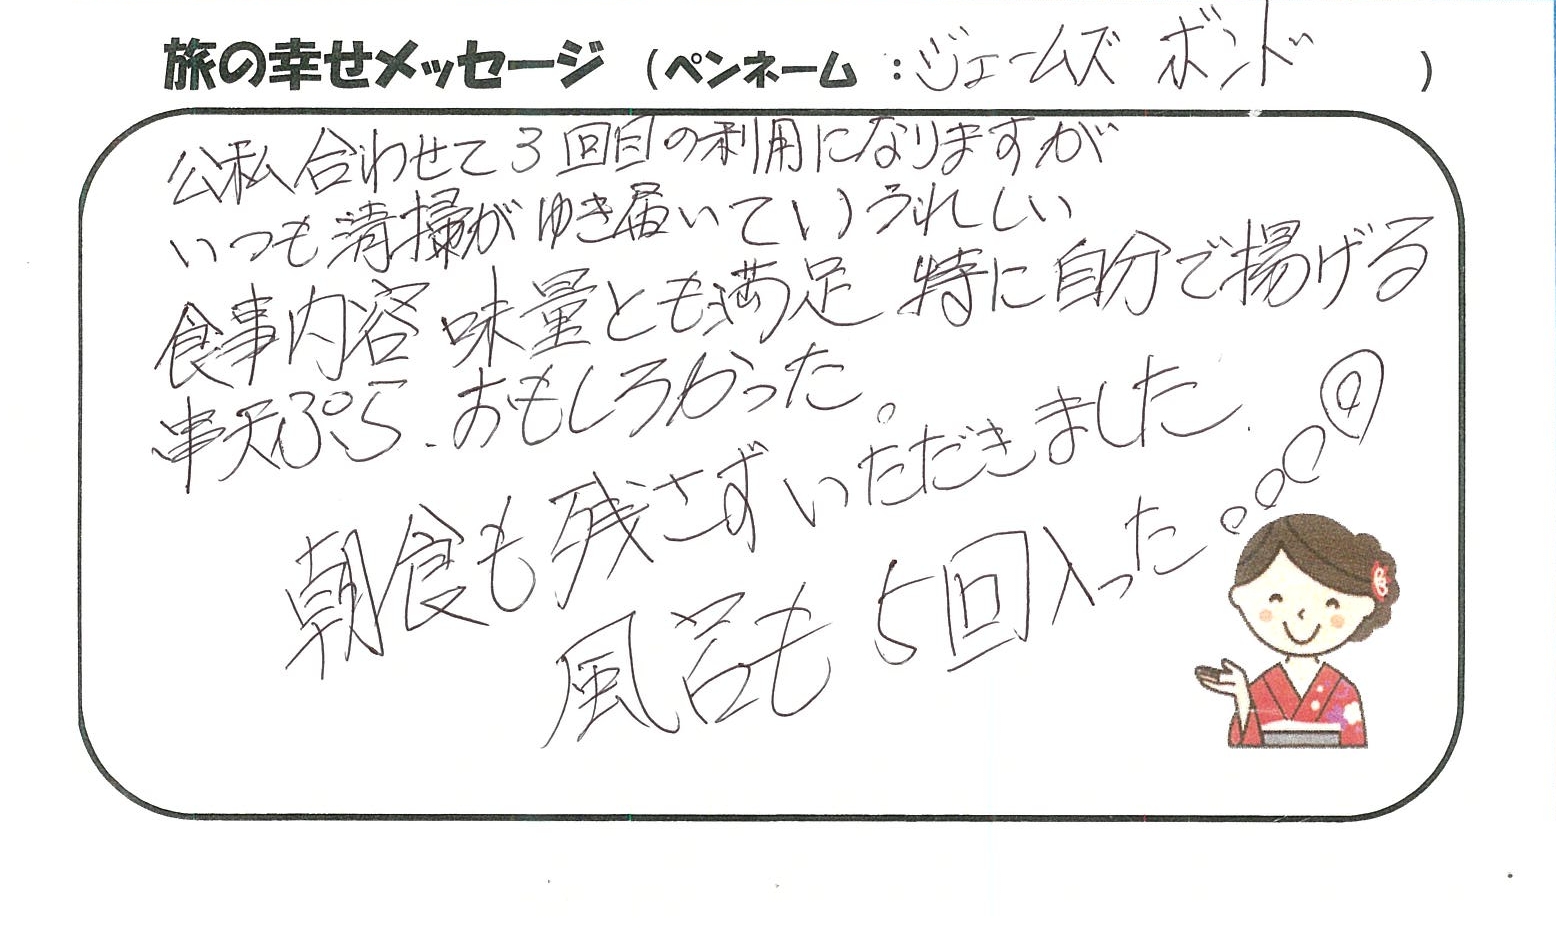 旅の幸せメッセージ (ペンネーム : ジェームズ ボンド )
公私合わせて3回目の利用になりますが
いつも清掃がゆき届いていり うれしい
食事内容 味量とも満足 特に自分で揚げる
串天ぷら、おもしろかった。
朝食も残さずいただきました
風呂も5回入った